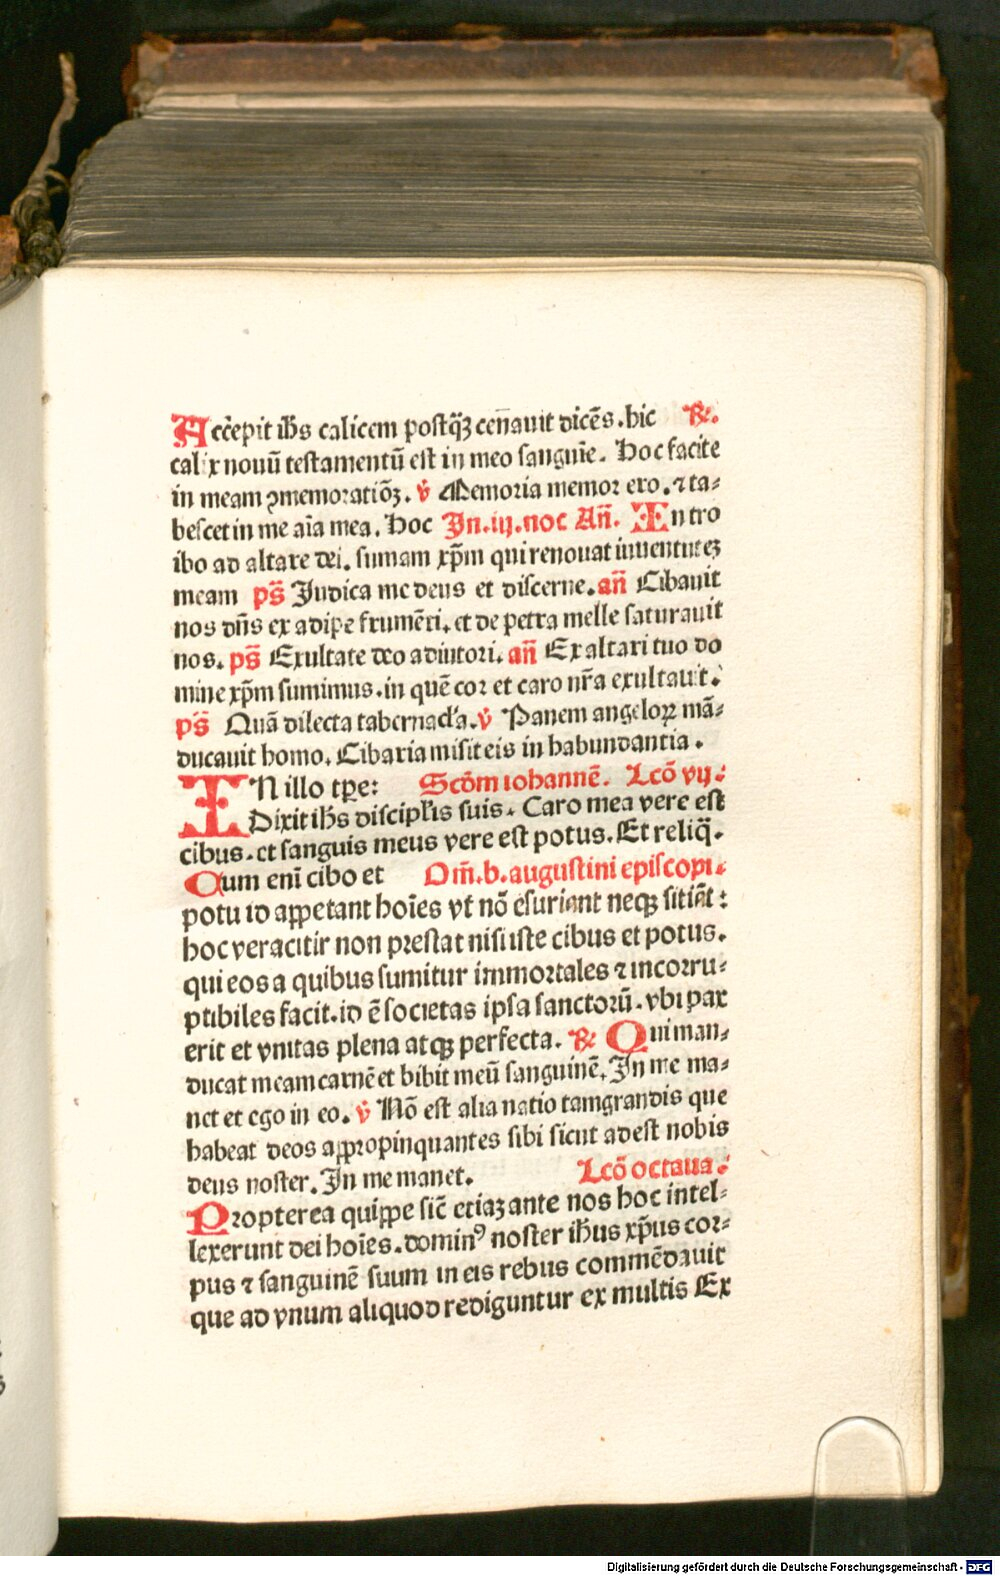 Accēpit ih̄s calicem postq̄ꝫ cenauit dicēs. hic ℟.
calix nouū testamentū est in meo sanguīe. Hoc facite
in meam ꝯmemoratiōꝫ. ℣ Memoria memor ero. ⁊ ta-
bescet in me aīa mea. Hoc In. iij. noc Añ. Intro
ibo ad altare dei. sumam xp̄m qui renouat iuuentuteꝫ
meam ps̄ Judica me deus et discerne. añ Cibauit
nos dn̄s ex adipe frumēti. et de petra melle saturauit
nos. ps̄ Exultate deo adiutori. añ Ex altari tuo do
mine xp̄m sumimus. in quē cor et caro nr̄a exultauit.
ps̄ Quā dilecta tabernacl̄a. ℣ Panem angeloꝝ mā-
ducauit homo. Cibaria misit eis in habundantia.
IN illo tꝑe: Scd̄m iohannē. Lcō vij.
Dixit ih̄s discipl̄is suis. Caro mea vere est
cibus. et sanguis meus vere est potus. Et reliq̄.
Cum enī cibo et Om̄. b. augustini episcopi.
potu id aꝓpetant hoīes vt nō esuriant neqꝫ sitiāt:
hoc veracitir non prestat nisi iste cibus et potus.
qui eos a quibus sumitur immortales ⁊ incorru-
ptibiles facit. id ē societas ipsa sanctorū. vbi pax
erit et vnitas plena atqꝫ perfecta. ℟ Qui man-
ducat meam carnē et bibit meū sanguinē. In me ma-
net et ego in eo. ℣ Nō est alia natio tam grandis que
habeat deos appropinquantes sibi sicut adest nobis
deus noster. In me manet. Lcō octaua.
Propterea quippe sic̄ etiaꝫ ante nos hoc intel-
lexerunt dei hoīes. dominꝰ noster ih̄us xp̄us cor-
pus ⁊ sanguinē suum in eis rebus commēdauit
que ad vnum aliquod rediguntur ex multis Ex
Digitalisierung gefördert durch die Deutsche Forschungsgemeinschaft - DFG